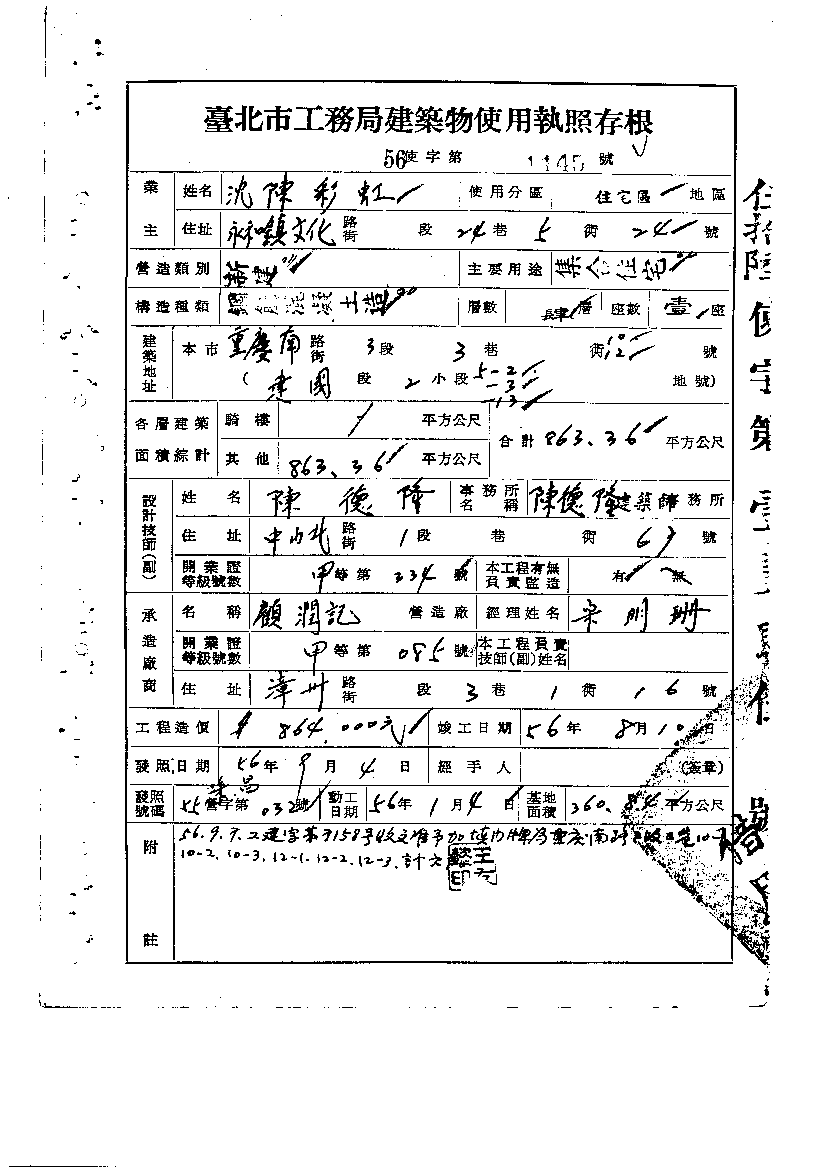 臺北市工務局建築物使用執照存根
56使字第 1145 號
業主 姓名 沈陳彩虹 使用分區 住宅區 地區
住址 永和鎮文化 路街 段 24巷 5 街 24 號
營造類別 新建 主要用途 集合住宅
構造種類 鋼筋混凝土造 層數 肆 層 座數 壹 座
建築地址 本市 重慶南 路街 3段 3巷 街 10 12 號
( 建國 段 2 小段 5-2 -3 -13 地號)
各層建築面積綜計 騎樓 平方公尺 合計 863.36 平方公尺
其他 863.36 平方公尺
設計技師(副) 姓名 陳德隆 事務所名稱 陳德隆建築師事務所
住址 中山北 路街 1段 巷 街 63 號
開業證等級號數 甲等第 2346 號 本工程有無負責監造 有 無
承造廠商 名稱 顧潤記 營造廠 經理姓名
開業證等級號數 甲等第 085 號 本工程負責技師(副)姓名
住址 漳州 路街 段 3巷 1街 16 號
工程造價 $ 864,000元 竣工日期 56年 8月 10日
發照日期 56年 9月 4日 經手人 (簽章)
發照號碼 55營字第 032 號 動工日期 56年 1月 4日 基地面積 360.84 平方公尺
附註 56.9.7.工建字第
10-2, 10-3, 12-1, 12-2, 12-3, 計六